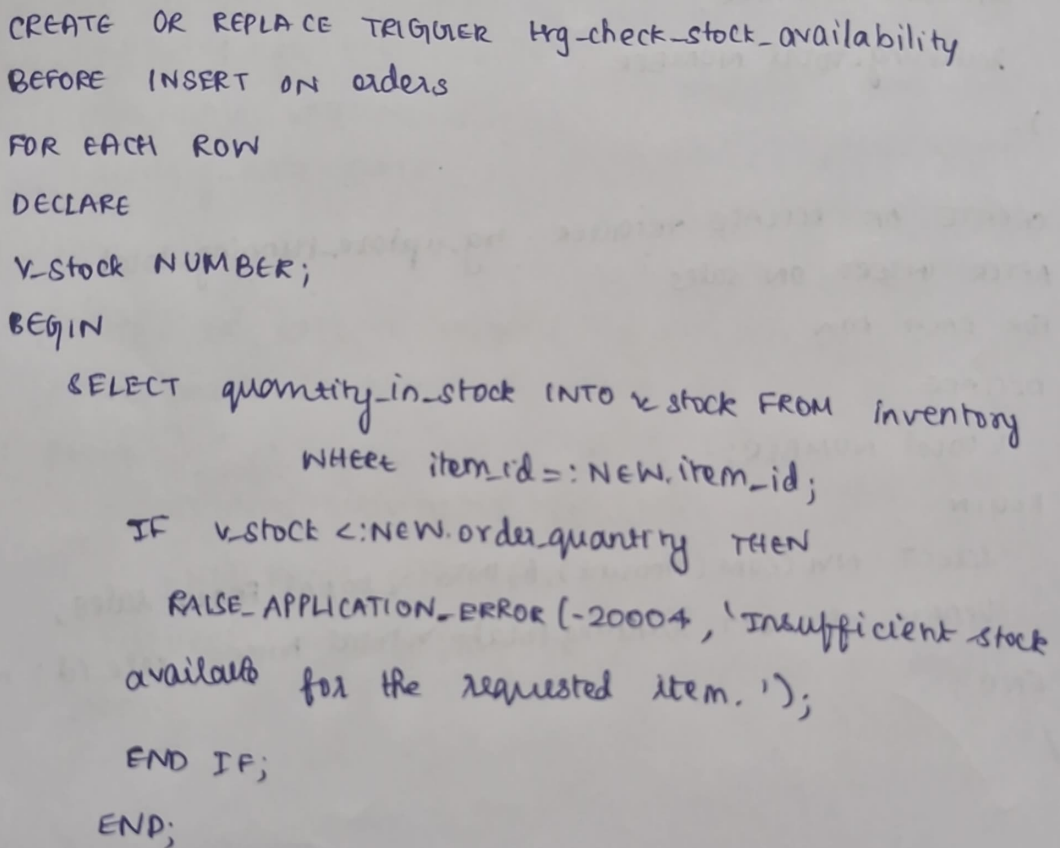 CREATE OR REPLACE TRIGGER trg_check_stock_availability
BEFORE INSERT ON orders
FOR EACH ROW
DECLARE
v_stock NUMBER;
BEGIN
SELECT quantity_in_stock INTO v_stock FROM inventory
WHERE item_id = :NEW.item_id;
IF v_stock < :NEW.order_quantity THEN
RAISE_APPLICATION_ERROR (-20004, 'Insufficient stock
available for the requested item.');
END IF;
END;